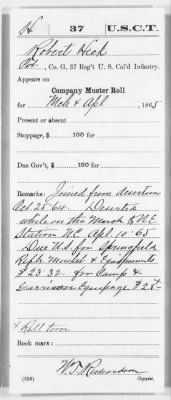 H 37 U.S.C.T.
Robert Heck
Pvt., Co. G, 37 Reg't U. S. Col'd Infantry.
Appears on
Company Muster Roll
for Mch & Apl, 1865
Present or absent
Stoppage, $ 100 for
Due Gov't, $ 100 for
Remarks: Joined from desertion
Oct 25 64. Deserted
while on the March to N.E.
Station N.C. Apl 10-65
Due U.S. for Springfield
Rifle Musket & Equipments
$23.32. for Camp &
Garrison Equipage $
* Roll torn
Book mark:
W.T. Richardson
(358) Copyist.